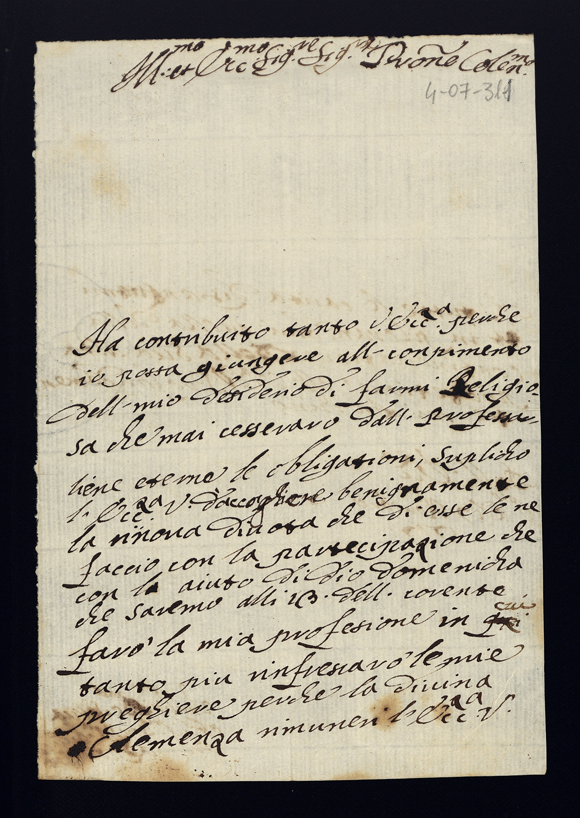 Ill.mo et Ecc.mo Sig.re Sig.re Prone Colen.mo
4-07-311
Ha contribuito tanto V. Ecc.a perche
io possa giungere all- conpimento
dell- mio desiderio di farmi Religio-
sa che mai cesseraro dall- profesar-
liene eterne le obligationi, suplicho
l'Ecc.za V. d'accogliere benignamente
la rinova divota che di esse le ne
faccio con la partecipazione che
con la aiuto di Dio domenicha
che saremo alli 13. dell. corente
farò la mia profesione in cui
tanto piu rinfrescarò le mie
preghiere perche la divina
Clemenza rimuneri l'Ecc.za V.